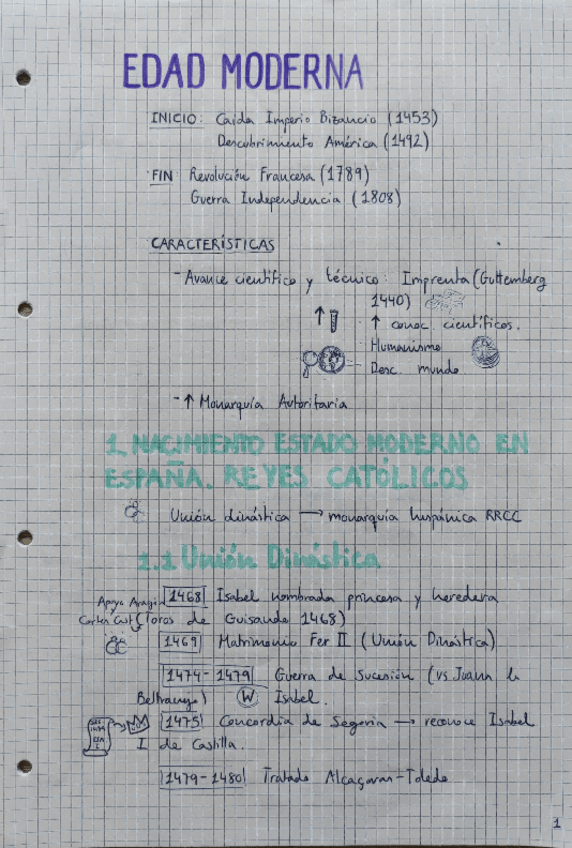 EDAD MODERNA
INICIO: Caída Imperio Bizancio (1453)
Descubrimiento América (1492)
FIN Revolución Francesa (1789)
Guerra Independencia (1808)
CARACTERÍSTICAS
- Avance científico y técnico: Imprenta (Guttemberg
1440)
↑ ↑ conoc. científicos.
Humanismo
Desc. mundo
- ↑ Monarquía Autoritaria
1. NACIMIENTO ESTADO MODERNO EN
ESPAÑA. REYES CATÓLICOS
Unión dinástica → monarquía hispánica RRCC
1.1 Unión Dinástica
Apoyo Aragón 1468 Isabel nombrada princesa y heredera
Cortes Cast (Toros de Guisando 1468)
1469 Matrimonio Fer II (Unión Dinástica)
1474-1479 Guerra de Sucesión (vs Juana la
Beltraneja) W Isabel.
1475 Concordia de Segovia → reconoce Isabel
I de Castilla.
1479-1480 Tratado Alcaçovas-Toledo
1